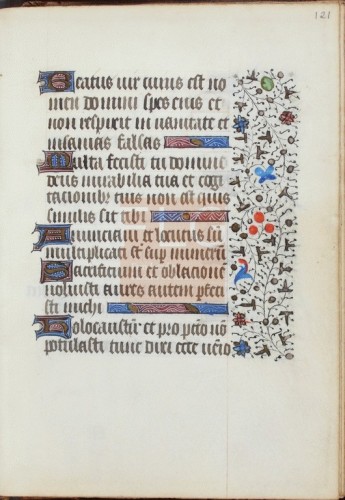 121
Beatus vir cuius est no
men domini spes eius et
non respexit in vanitate et
insanias falsas
Multa fecisti tu domine
deus mirabilia tua et cogi
tacionibus tuis non est quis
similis sit tibi
Annunciavi et locutus sū
multiplicati sūt sup numerum
Sacrificium et oblacionē
noluisti aures autem pfeci
sti michi
Holocaustum et pro pctō nō
postulasti tunc dixi ecce venio